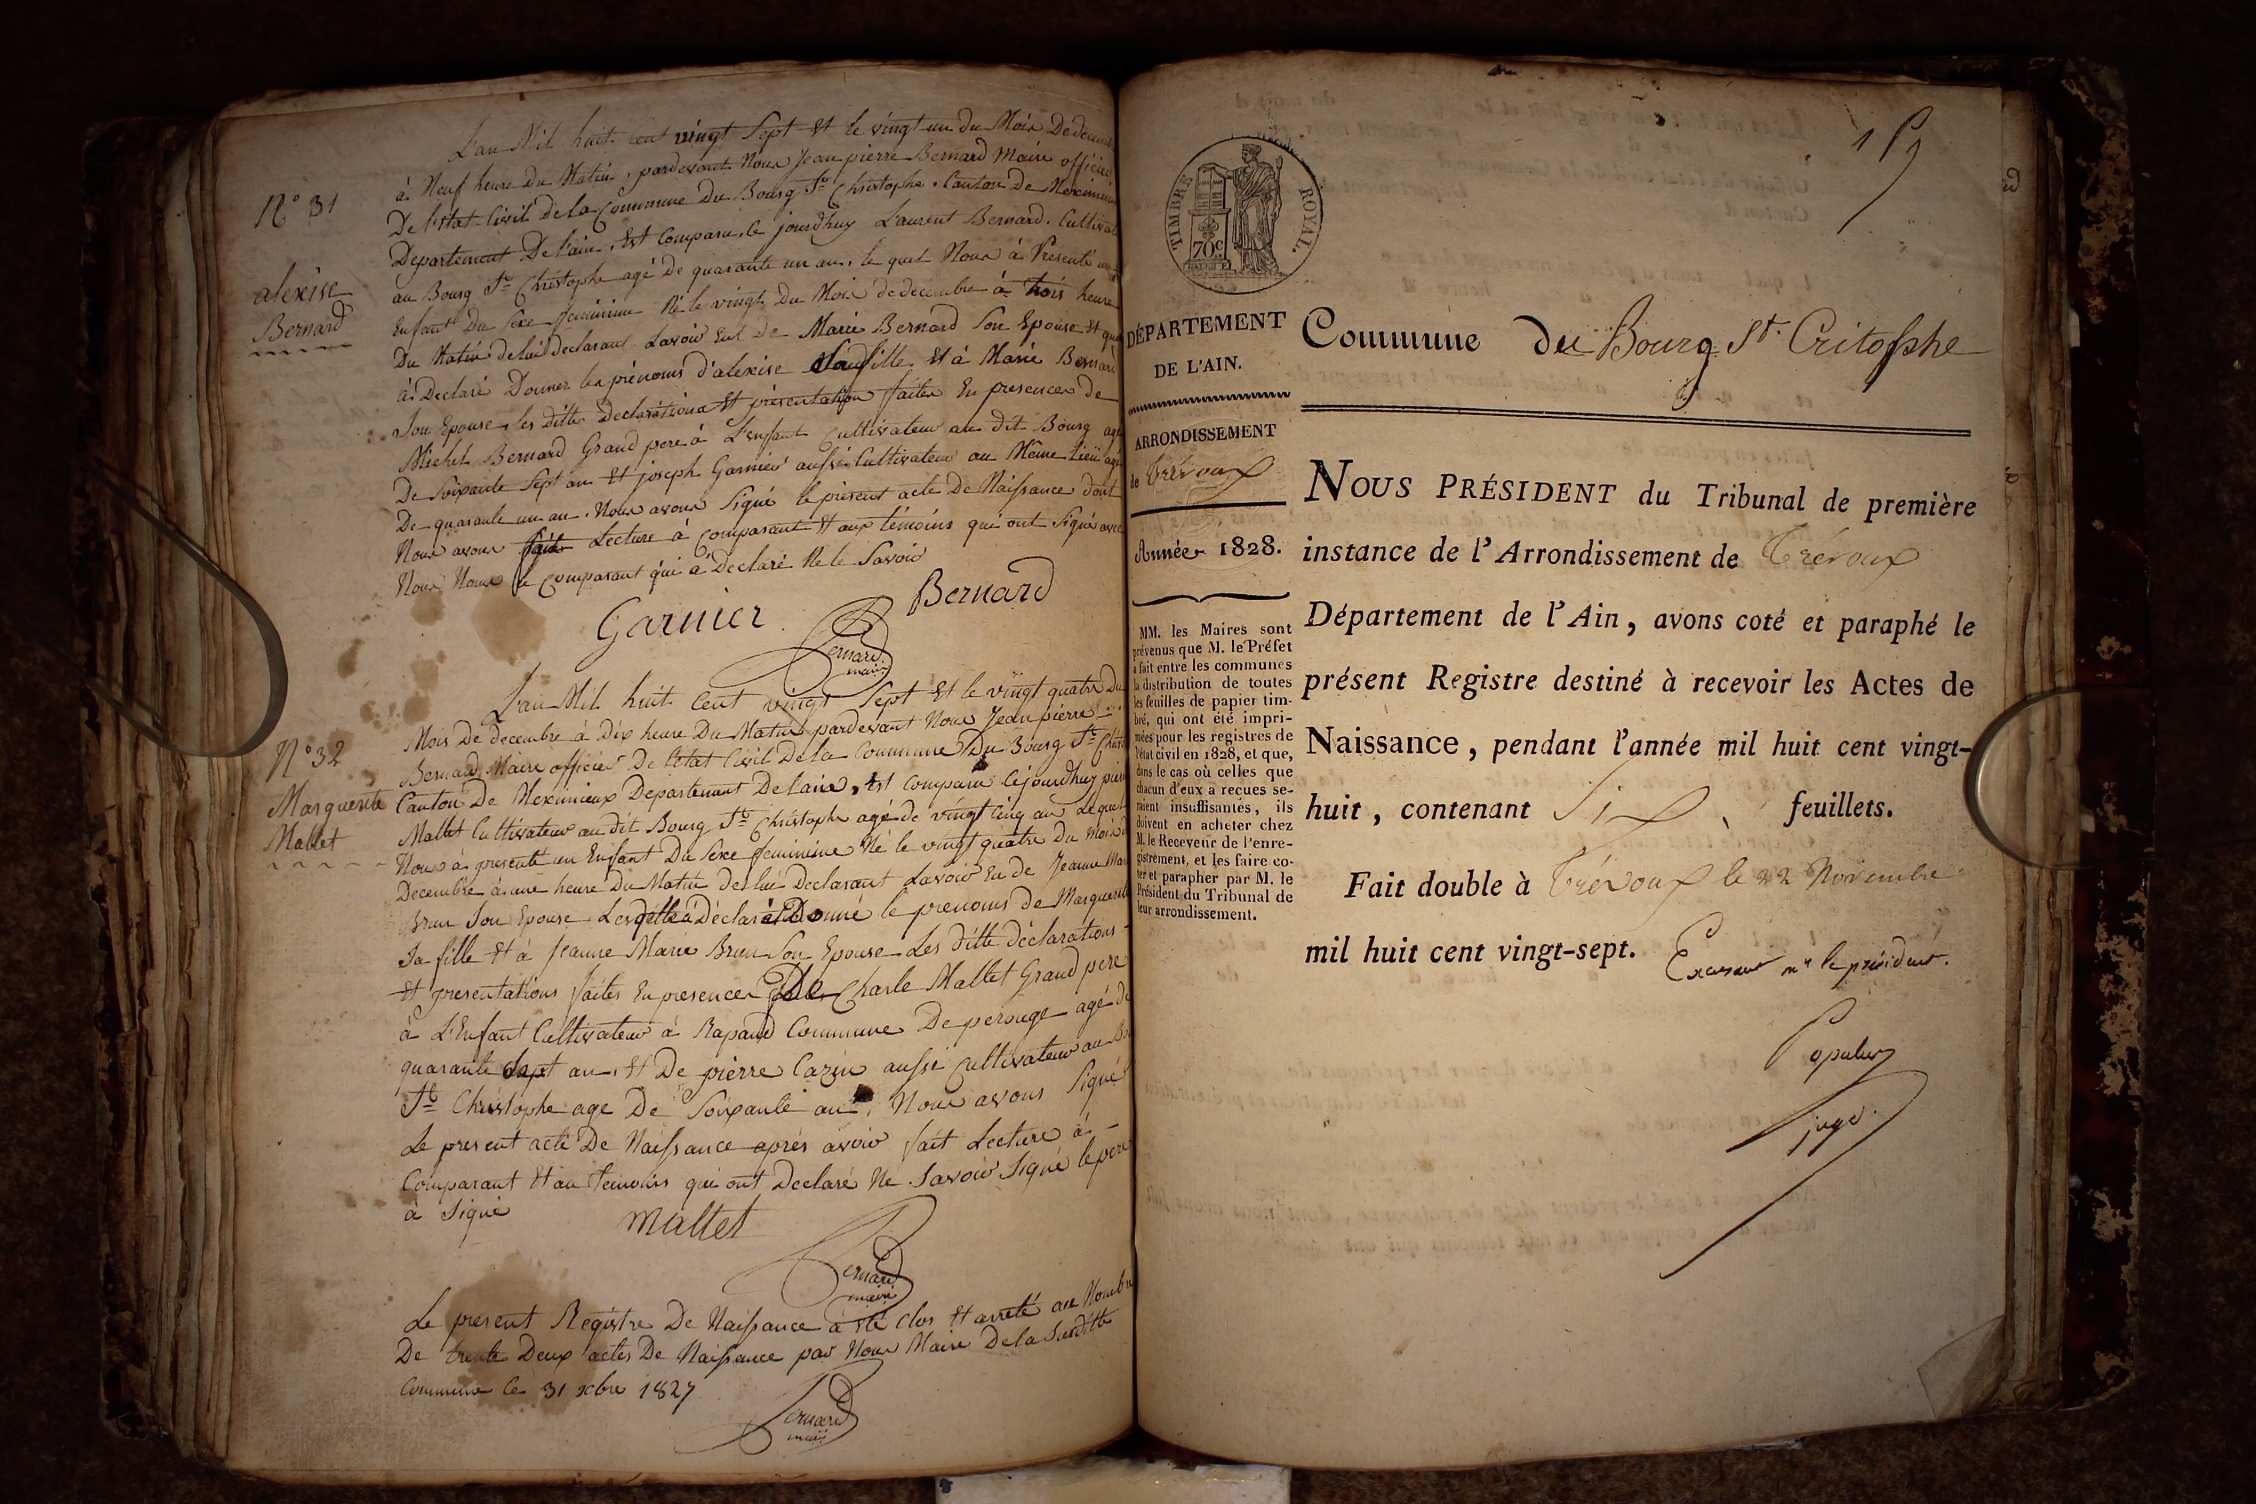 L'an Mil huit cent vingt Sept Et le vingt un du Mois De decem
à Neuf heure Du Matin, pardevant Nous Jean pierre Bernard Maire officier
N° 31
De l'Etat Civil De la Commune Du Bourg St Christophe, Canton De Meximieux
Departement De l'ain, Est Comparu, le jourdhuy Laurent Bernard, Cultivat
au Bourg St Christophe agé De quarante un an, le quel Nous à Presenté un
alexise
Bernard
Enfant Du Sexe feminime Né le vingt Du Mois de decembre à trois heure
Du Matin De lui declarant Lavoir Eut De Marie Bernard Son Epouse Et que
à Declaré Donner les prénoms d'alexise Sa fille, Et à Marie Bernard
Son Epouse, les ditte Declarations Et présentation faites En presences de
Michel Bernard Grand pere à L'enfant Cultivateur au dit Bourg agé
De Soixante Sept an Et joseph Garnier aussi Cultivateur au Même Lieu agé
De quarante un an, Nous avons Signé le present acte De Naissance dont
Nous avons fait Lecture à Comparant Et aux témoins qui ont Signé avec
Nous Nous le Comparant qui à Declaré Ne le Savoir
Garnier
Bernard
Bernard
maire
L'an Mil huit Cent vingt Sept Et le vingt quatre Du
Mois De decembre à Dix heure Du Matin pardevant Nous Jean pierre
N° 32
Bernard Maire officier De l'Etat Civil De la Commune Du Bourg St Christ
Marguerite
Mallet
Canton De Meximieux Departement De laine, Est Comparu Cejourdhuy pierre
Mallet Cultivateur au dit Bourg St Christophe agé de vingt Cinq an Le quel
Nous à presenté un Enfant Du Sexe feminime Né le vingt quatre Du mois d
Decembre à une heure Du Matin De lui Declarant Lavoir Eu de Jeanne Mar
Brun Son Epouse à Déclaré Donné le prenoms de Marguerite
Sa fille Et à Jeanne Marie Brun Son Epouse Les ditte déclarations
Et presentations faites En presences De Charle Mallet Grand pere
à L'Enfant Cultivateur à Rapand Commune De perouge agé de
quarante Sept an, Et De pierre Cazin aussi Cultivateur au Bo
St Christophe age De Soixante an, Nous avons Signé
Le present acte De Naissance aprés avoir fait Lecture à
Comparant Et au temoins qui ont Declaré Né Savoir Signé le pere
à Signé
Mallet
Bernard
maire
Le present Registre De Naissance à eté Clos Et arreté au Nombre
De trente Deux actes De Naissance par Nous Maire De la Susditte
Commune Ce 31 xbre 1827
Bernard
maire
TIMBRE ROYAL.
70c
DÉPARTEMENT
DE L'AIN.
ARRONDISSEMENT
de Trévoux
Année 1828.
MM. les Maires sont
prévenus que M. le Préfet
a fait entre les communes
la distribution de toutes
les feuilles de papier tim-
bré, qui ont été impri-
mées pour les registres de
l'état civil en 1828, et que,
dans le cas où celles que
chacun d'eux a reçues se-
raient insuffisantes, ils
doivent en acheter chez
M. le Receveur de l'enre-
gistrement, et les faire co-
ter et parapher par M. le
Président du Tribunal de
leur arrondissement.
Commune du Bourg St. Critophe
NOUS PRÉSIDENT du Tribunal de première
instance de l'Arrondissement de Trévoux
Département de l'Ain, avons coté et paraphé le
présent Registre destiné à recevoir les Actes de
Naissance, pendant l'année mil huit cent vingt-
huit, contenant Six feuillets.
Fait double à Trévoux le 22 Novembre
mil huit cent vingt-sept.
mr le président.
juge.